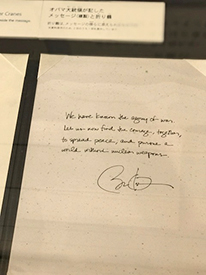 Cranes
message
オバマ大統領が記した
メッセージ(複製)と折り鶴
We have known the agony of war.
Let us now find the courage, together,
to spread peace, and pursue a
world without nuclear weapons.